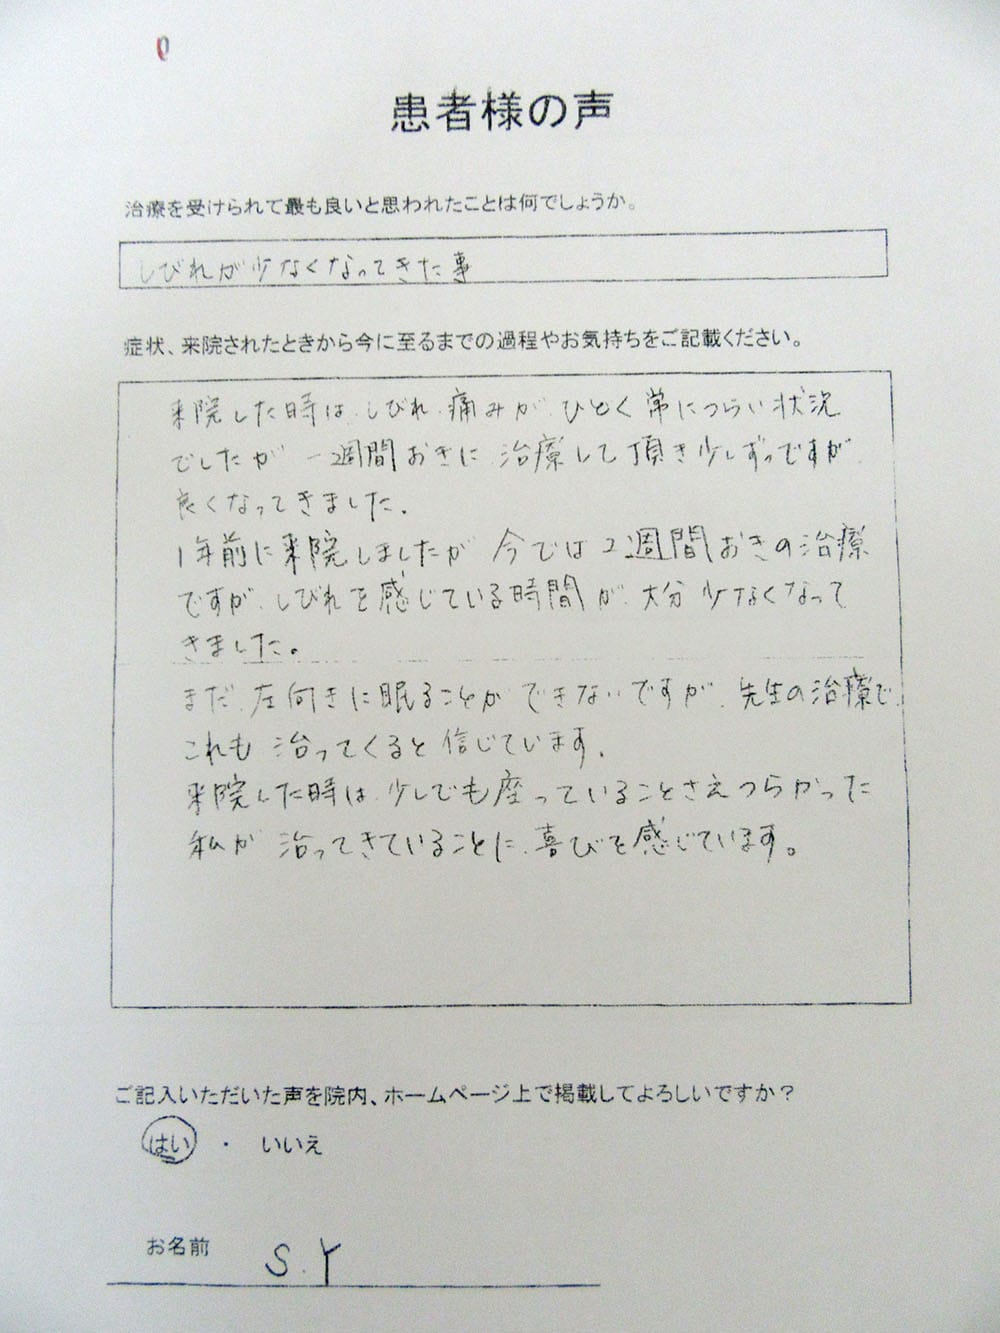 患者様の声
治療を受けられて最も良いと思われたことは何でしょうか。
しびれが少なくなってきた事
症状、来院されたときから今に至るまでの過程やお気持ちをご記載ください。
来院した時は、しびれ、痛みが、ひどく常につらい状況
でしたが 一週間おきに、治療して頂き少しずつですが、
良くなってきました。
1年前に来院しましたが 今では2週間おきの治療
ですが、しびれを感じている時間が、大分少なくなって
きました。
まだ、左向きに眠ることができないですが、先生の治療で、
これも治ってくると信じています。
来院した時は、少しでも座っていることさえつらかった
私が 治ってきていることに、喜びを感じています。
ご記入いただいた声を院内、ホームページ上で掲載してよろしいですか？
はい ・ いいえ
お名前 S.Y